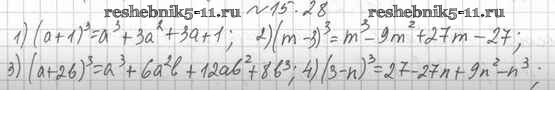 reshebnik5-11.ru №15.28 reshebnik5-11.ru
1) (a+1)³=a³+3a²+3a+1; 2)(m-3)³=m³-9m²+27m-27;
3) (a+2b)³=a³+6a²b+12ab²+8b³; 4) (3-n)³=27-27n+9n²-n³;